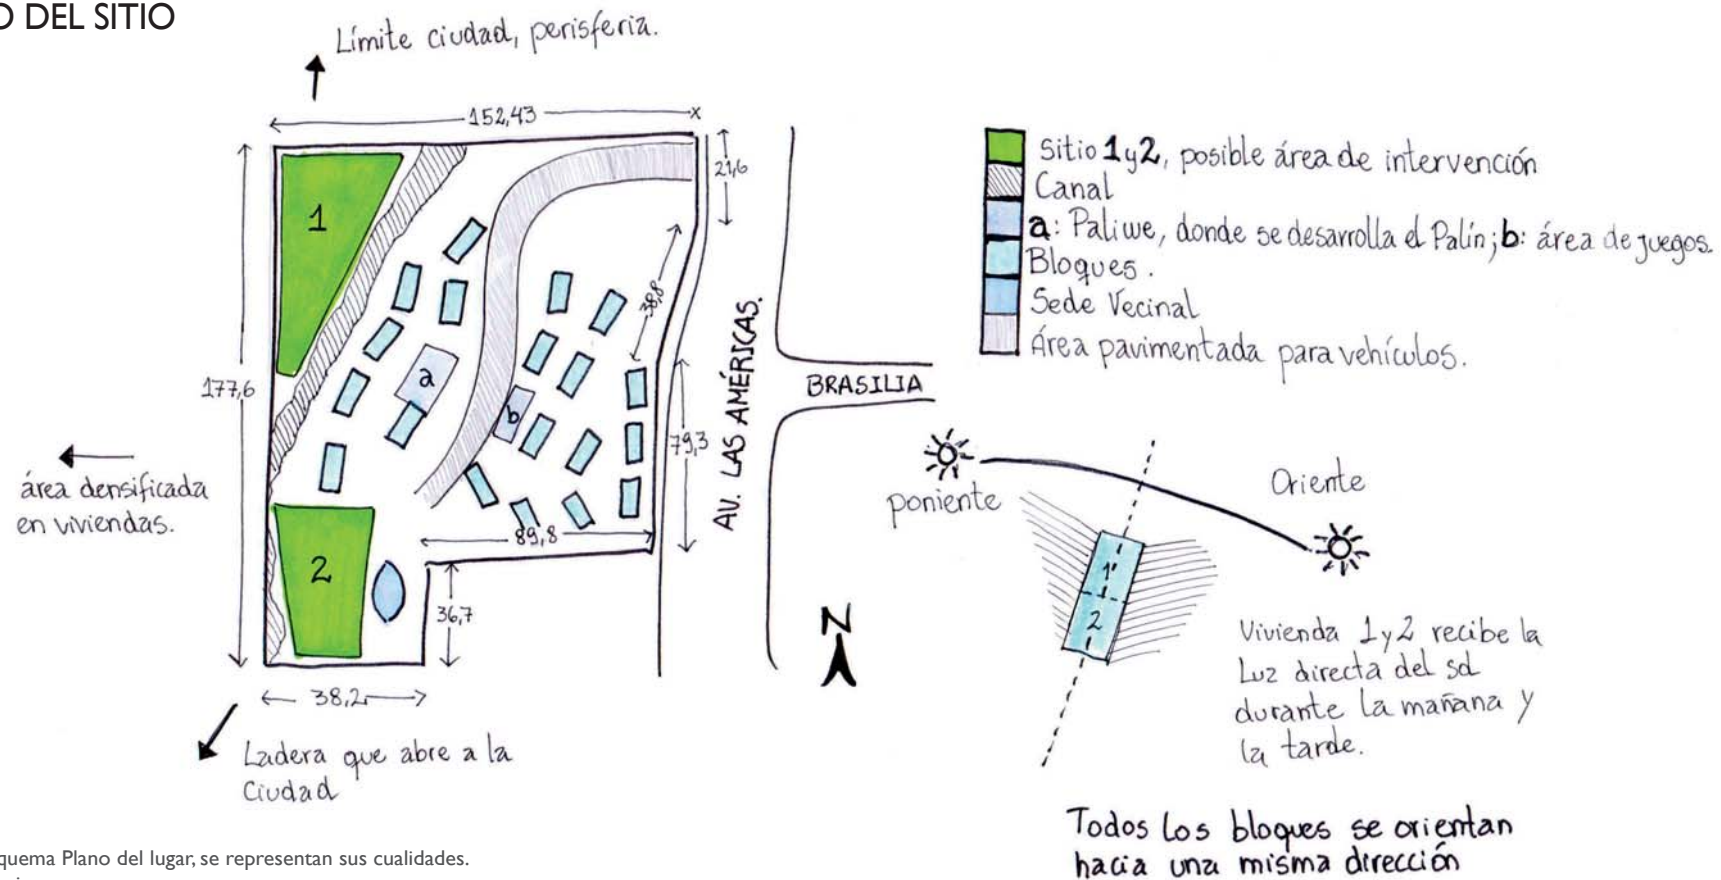 O DEL SITIO
Límite ciudad, perisferia.
152,43
x
21,6
1
38,8
a
b
177,6
79,3
89,8
2
36,7
38,2
área densificada
en viviendas.
Ladera que abre a la
Ciudad
AV. LAS AMÉRICAS.
BRASILIA
N
Sitio 1 y 2, posible área de intervención
Canal
a: Paliwe, donde se desarrolla el Palín; b: área de juegos.
Bloques.
Sede Vecinal
Área pavimentada para vehículos.
poniente
Oriente
1'
2
Vivienda 1 y 2 recibe la
Luz directa del sol
durante la mañana y
la tarde.
Todos los bloques se orientan
hacia una misma dirección
quema Plano del lugar, se representan sus cualidades.